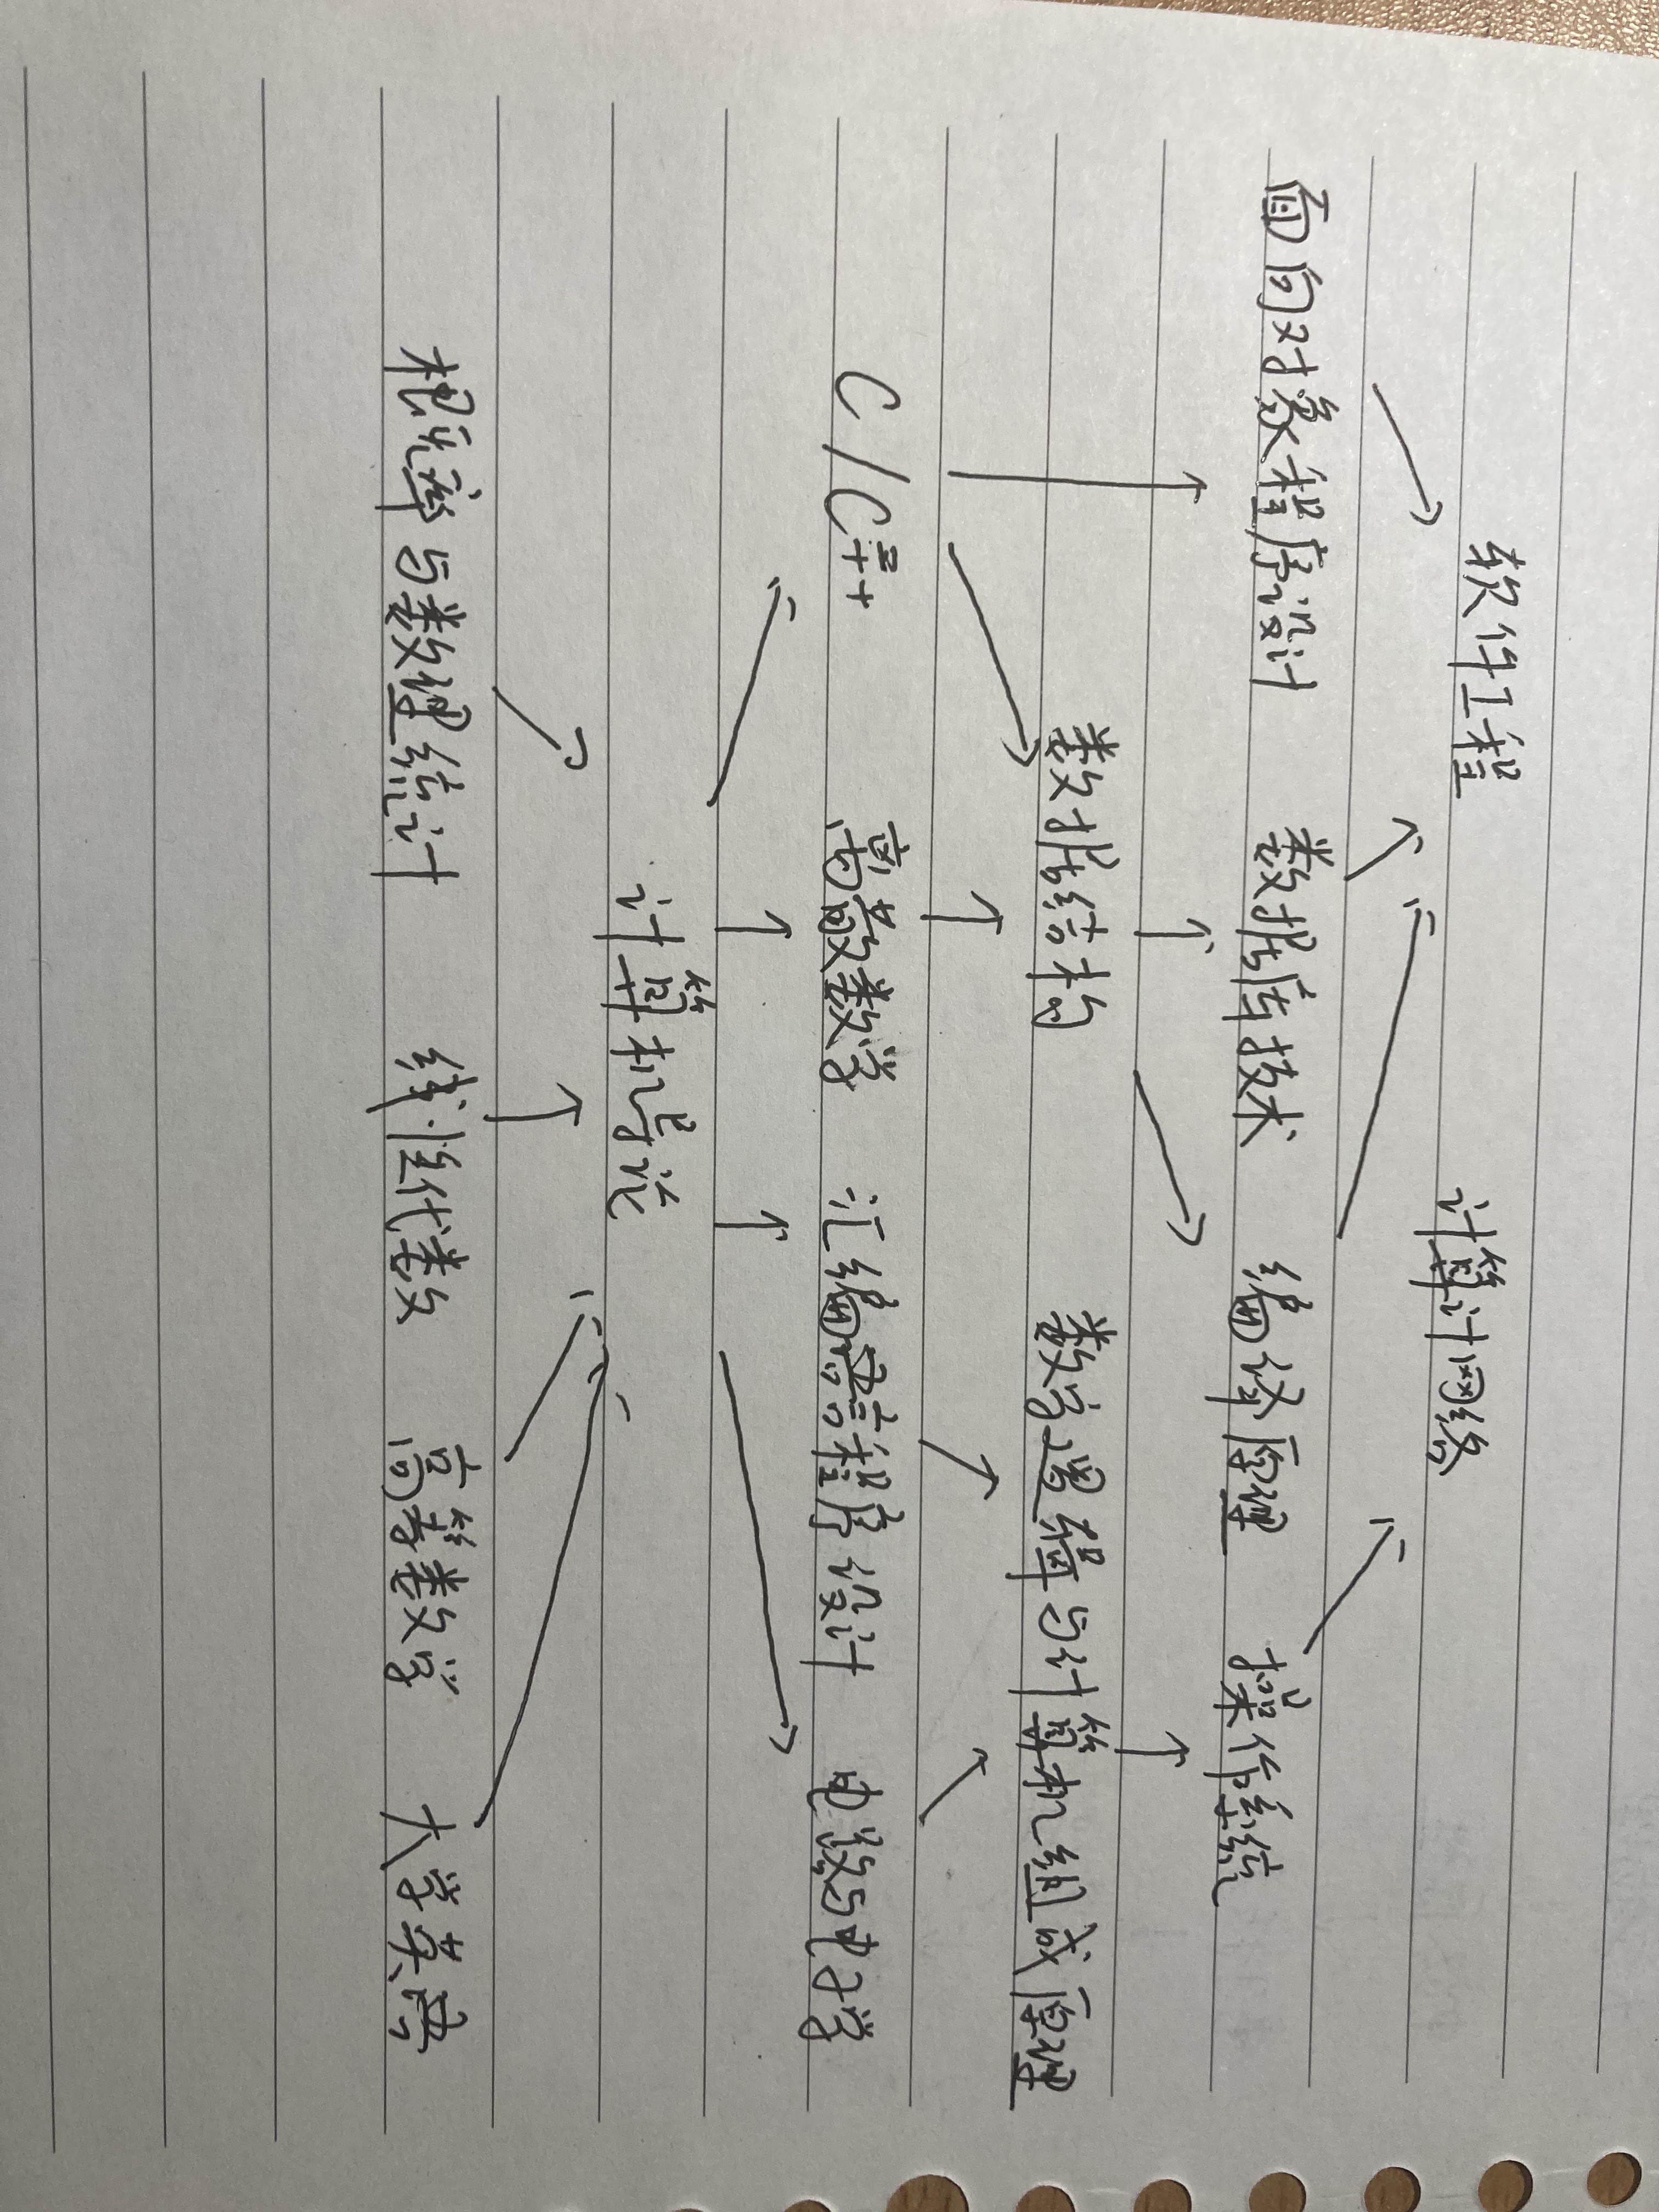 软件工程 计算计网络
面向对象程序设计 数据库技术 编译原理 操作系统
数据结构 数字逻辑与计算机组成原理
C/C++ 离散数学 汇编语言程序设计 电路与电子学
计算机导论
概率与数理统计 线性代数 高等数学 大学英语